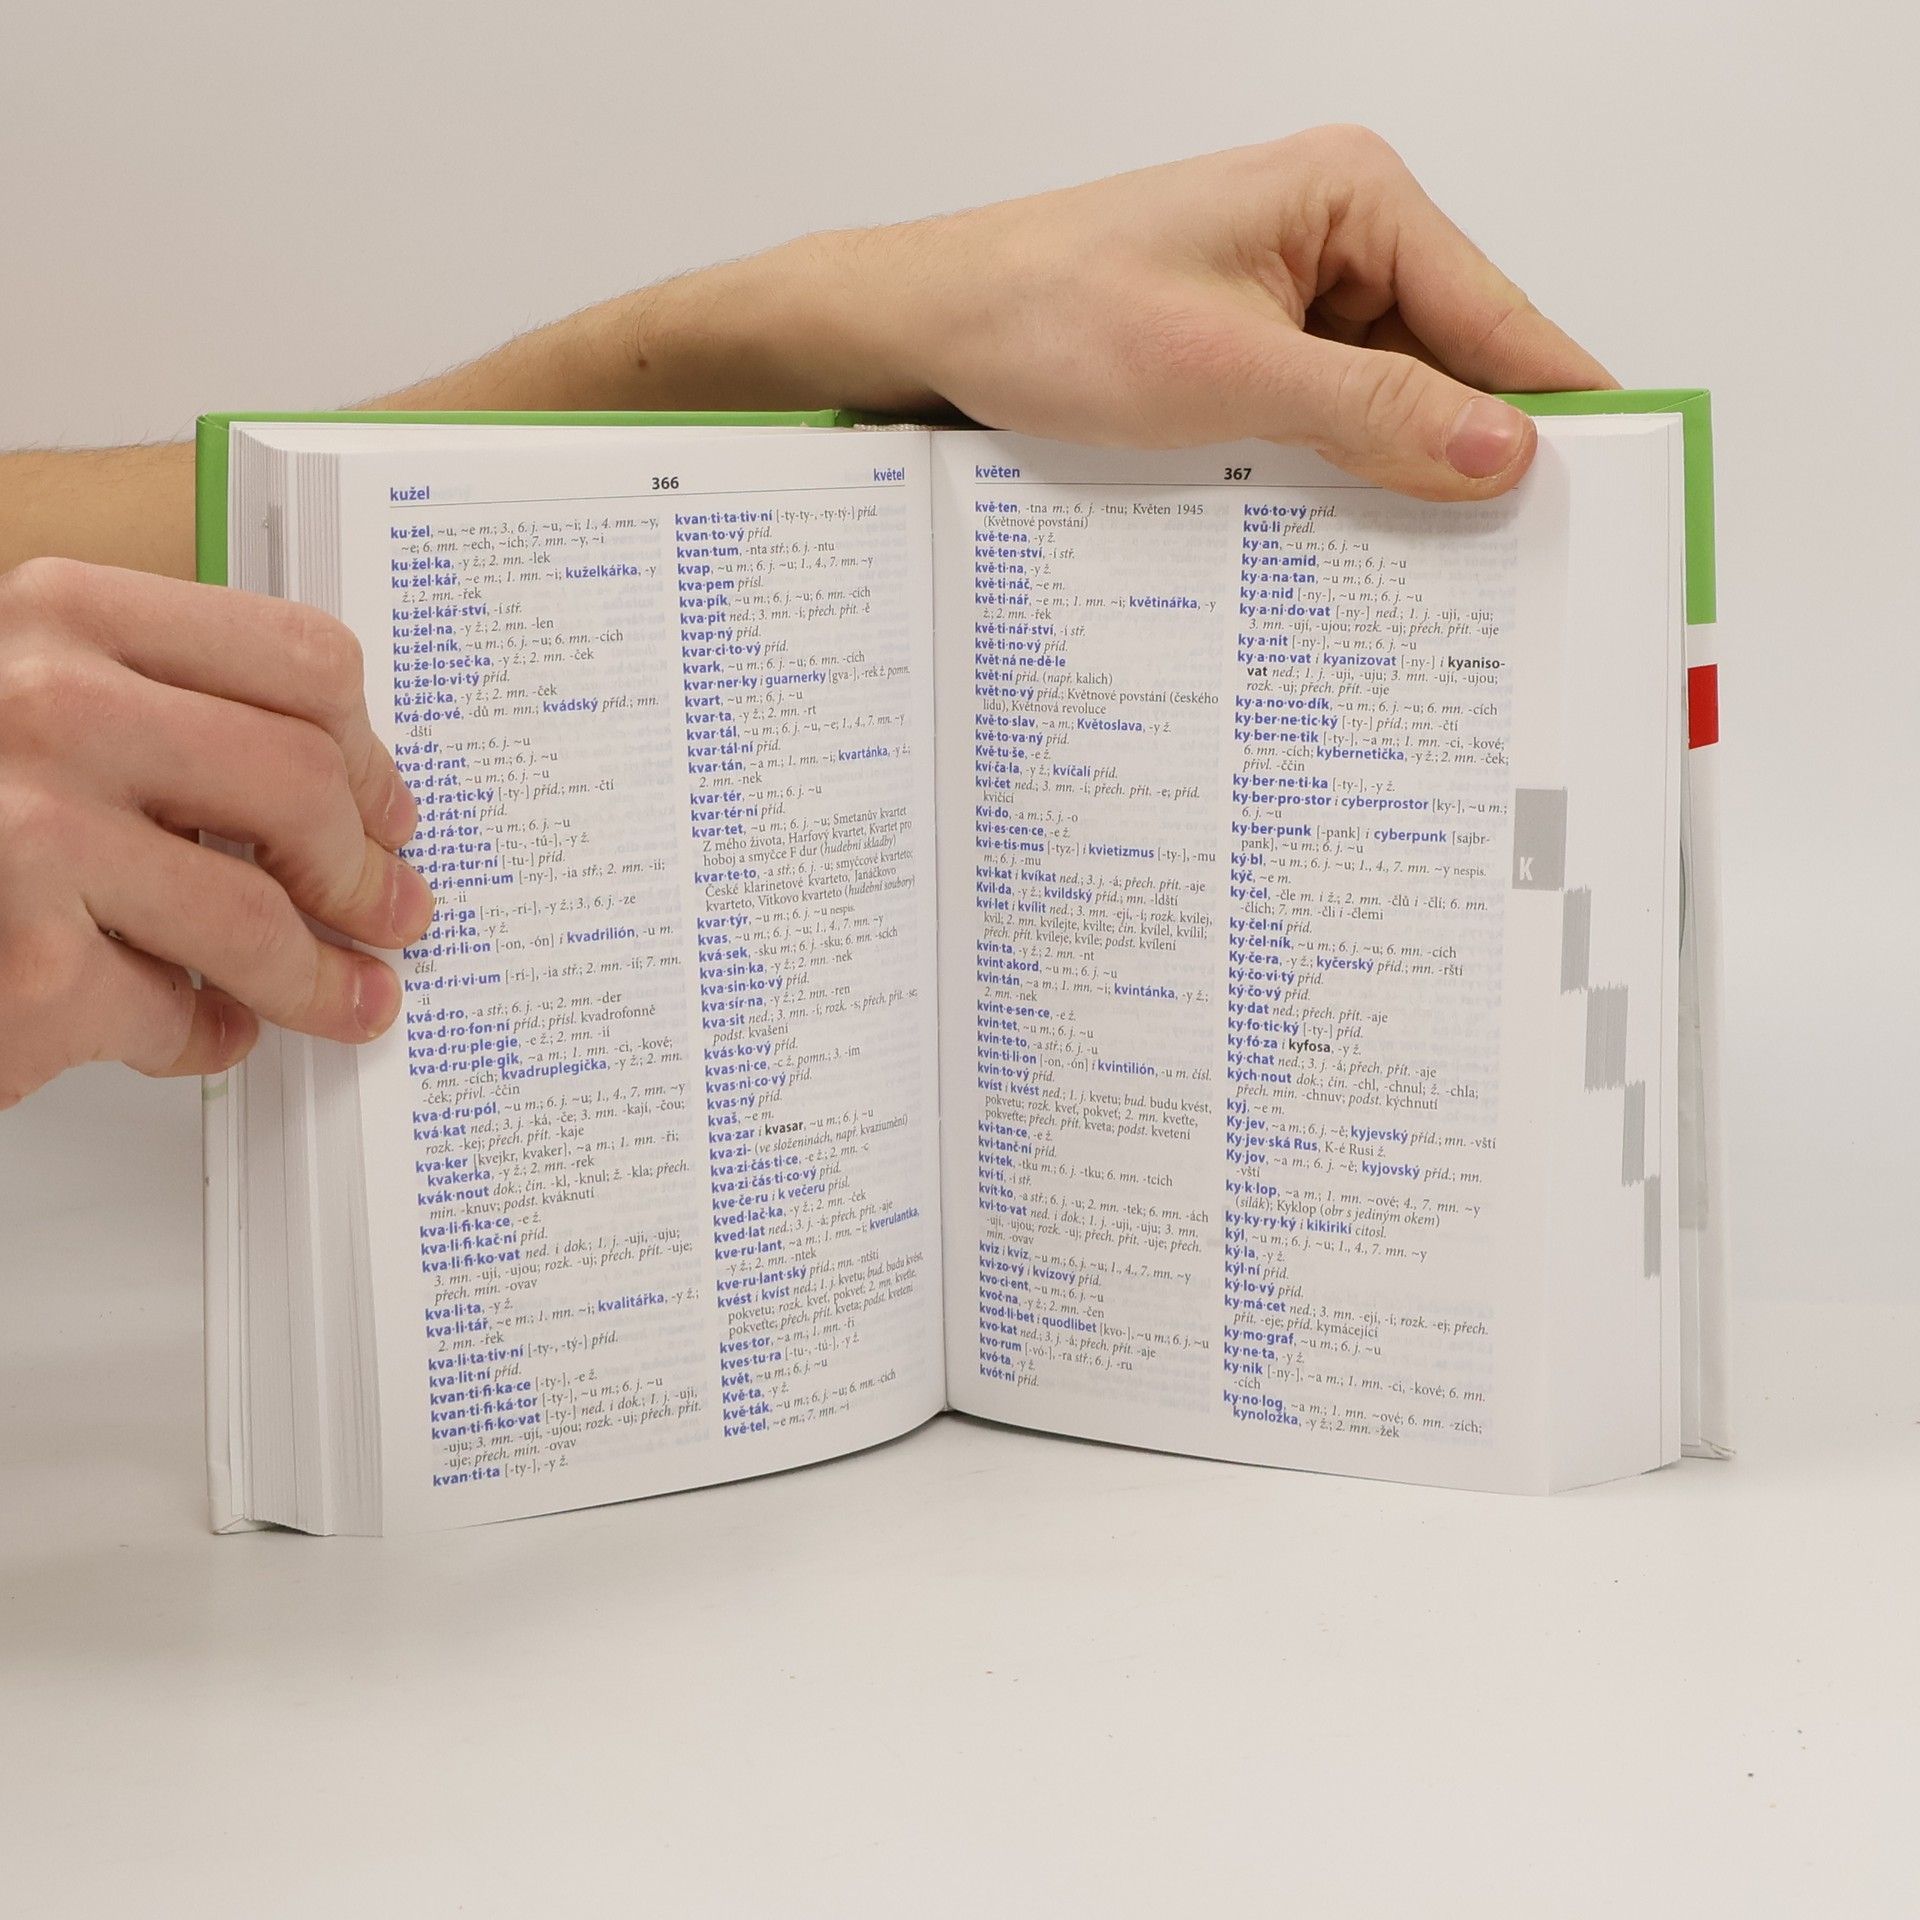 kužel 366 květel
ku·žel, ~u, ~e m.; 3., 6. j. ~u, ~i; 1., 4. mn. ~y,
~e; 6. mn. ~ech, ~ich; 7. mn. ~y, ~i
ku·žel·ka, -y ž.; 2. mn. -lek
ku·žel·kář, ~e m.; 1. mn. ~i; kuželkářka, -y
ž.; 2. mn. -řek
ku·žel·kář·ství, -í stř.
ku·žel·na, -y ž.; 2. mn. -len
ku·žel·ník, ~u m.; 6. j. ~u; 6. mn. -cích
ku·že·lo·seč·ka, -y ž.; 2. mn. -ček
ku·že·lo·vi·tý příd.
ků·žič·ka, -y ž.; 2. mn. -ček
Kvá·do·vé, -dů m. mn.; kvádský příd.; mn.
-dští
kvá·dr, ~u m.; 6. j. ~u
va·d·rant, ~u m.; 6. j. ~u
va·d·rát, ~u m.; 6. j. ~u
a·d·ra·tic·ký [-ty-] příd.; mn. -čtí
a·d·rát·ní příd.
a·d·rá·tor, ~u m.; 6. j. ~u
kva·d·ra·tu·ra [-tu-, -tú-], -y ž.
va·d·ra·tur·ní [-tu-] příd.
d·ri·enni·um [-ny-], -ia stř.; 2. mn. -ií;
n. -ii
d·ri·ga [-ri-, -rí-], -y ž.; 3., 6. j. -ze
a·d·ri·ka, -y ž.
kva·d·ri·li·on [-on, -ón] i kvadrilión, -u m.
čísl.
kva·d·ri·vi·um [-rí-], -ia stř.; 2. mn. -ií; 7. mn.
-ii
kvá·d·ro, -a stř.; 6. j. -u; 2. mn. -der
kva·d·ro·fon·ní příd.; přísl. kvadrofonně
kva·d·ru·ple·gie, -e ž.; 2. mn. -ií
kva·d·ru·ple·gik, ~a m.; 1. mn. -ci, -kové;
6. mn. -cích; kvadruplegička, -y ž.; 2. mn.
-ček; přivl. -ččin
kva·d·ru·pól, ~u m.; 6. j. ~u; 1., 4., 7. mn. ~y
kvá·kat ned.; 3. j. -ká, -če; 3. mn. -kají, -čou;
rozk. -kej; přech. přít. -kaje
kva·ker [kvejkr, kvaker], ~a m.; 1. mn. -ři;
kvakerka, -y ž.; 2. mn. -rek
kvák·nout dok.; čin. -kl, -knul; ž. -kla; přech.
min. -knuv; podst. kváknutí
kva·li·fi·ka·ce, -e ž.
kva·li·fi·kač·ní příd.
kva·li·fi·ko·vat ned. i dok.; 1. j. -uji, -uju;
3. mn. -ují, -ujou; rozk. -uj; přech. přít. -uje;
přech. min. -ovav
kva·li·ta, -y ž.
kva·li·tář, ~e m.; 1. mn. ~i; kvalitářka, -y ž.;
2. mn. -řek
kva·li·ta·tiv·ní [-ty-, -tý-] příd.
kva·lit·ní příd.
kvan·ti·fi·ka·ce [-ty-], -e ž.
kvan·ti·fi·ká·tor [-ty-], ~u m.; 6. j. ~u
kvan·ti·fi·ko·vat [-ty-] ned. i dok.; 1. j. -uji,
-uju; 3. mn. -ují, -ujou; rozk. -uj; přech. přít.
-uje; přech. min. -ovav
kvan·ti·ta [-ty-], -y ž.
kvan·ti·ta·tiv·ní [-ty-ty-, -ty-tý-] příd.
kvan·to·vý příd.
kvan·tum, -nta stř.; 6. j. -ntu
kvap, ~u m.; 6. j. ~u; 1., 4., 7. mn. ~y
kva·pem přísl.
kva·pík, ~u m.; 6. j. ~u; 6. mn. -cích
kva·pit ned.; 3. mn. -í; přech. přít. -ě
kvap·ný příd.
kvar·ci·to·vý příd.
kvark, ~u m.; 6. j. ~u; 6. mn. -cích
kvar·ner·ky i guarnerky [gva-], -rek ž. pomn.
kvart, ~u m.; 6. j. ~u
kvar·ta, -y ž.; 2. mn. -rt
kvar·tál, ~u m.; 6. j. ~u, ~e; 1., 4., 7. mn. ~y
kvar·tál·ní příd.
kvar·tán, ~a m.; 1. mn. ~i; kvartánka, -y ž.;
2. mn. -nek
kvar·tér, ~u m.; 6. j. ~u
kvar·tér·ní příd.
kvar·tet, ~u m.; 6. j. ~u; Smetanův kvartet
Z mého života, Harfový kvartet, Kvartet pro
hoboj a smyčce F dur (hudební skladby)
kvar·te·to, -a stř.; 6. j. -u; smyčcové kvarteto;
České klarinetové kvarteto, Janáčkovo
kvarteto, Vítkovo kvarteto (hudební soubory)
kvar·týr, ~u m.; 6. j. ~u nespis.
kvas, ~u m.; 6. j. ~u; 1., 4., 7. mn. ~y
kvá·sek, -sku m.; 6. j. -sku; 6. mn. -scích
kva·sin·ka, -y ž.; 2. mn. -nek
kva·sin·ko·vý příd.
kva·sír·na, -y ž.; 2. mn. -ren
kva·sit ned.; 3. mn. -í; rozk. -s; přech. přít. -se;
podst. kvašení
kvás·ko·vý příd.
kvas·ni·ce, -c ž. pomn.; 3. -ím
kvas·ni·co·vý příd.
kvas·ný příd.
kvaš, ~e m.
kva·zar i kvasar, ~u m.; 6. j. ~u
kva·zi- (ve složeninách, např. kvaziumění)
kva·zi·čás·ti·ce, -e ž.; 2. mn. -c
kva·zi·čás·ti·co·vý příd.
kve·če·ru i k večeru přísl.
kved·lač·ka, -y ž.; 2. mn. -ček
kved·lat ned.; 3. j. -á; přech. přít. -aje
kve·ru·lant, ~a m.; 1. mn. ~i; kverulantka,
-y ž.; 2. mn. -ntek
kve·ru·lant·ský příd.; mn. -ntští
kvést i kvíst ned.; 1. j. kvetu; bud. budu kvést,
pokvetu; rozk. kveť, pokveť; 2. mn. kveťte,
pokveťte; přech. přít. kveta; podst. kvetení
kves·tor, ~a m.; 1. mn. -ři
kves·tu·ra [-tu-, -tú-], -y ž.
květ, ~u m.; 6. j. ~u
Kvě·ta, -y ž.
kvě·ták, ~u m.; 6. j. ~u; 6. mn. -cích
kvě·tel, ~e m.; 7. mn. ~i
květen 367
kvě·ten, -tna m.; 6. j. -tnu; Květen 1945
(Květnové povstání)
kvě·te·na, -y ž.
kvě·ten·ství, -í stř.
kvě·ti·na, -y ž.
kvě·ti·náč, ~e m.
kvě·ti·nář, ~e m.; 1. mn. ~i; květinářka, -y
ž.; 2. mn. -řek
kvě·ti·nář·ství, -í stř.
kvě·ti·no·vý příd.
Květ·ná ne·dě·le
květ·ní příd. (např. kalich)
květ·no·vý příd.; Květnové povstání (českého
lidu), Květnová revoluce
Kvě·to·slav, ~a m.; Květoslava, -y ž.
kvě·to·va·ný příd.
Kvě·tu·še, -e ž.
kví·ča·la, -y ž.; kvíčalí příd.
kvi·čet ned.; 3. mn. -í; přech. přít. -e; příd.
kvičící
Kvi·do, -a m.; 5. j. -o
kvi·es·cen·ce, -e ž.
kvi·e·tis·mus [-tyz-] i kvietizmus [-ty-], -mu
m.; 6. j. -mu
kvi·kat i kvíkat ned.; 3. j. -á; přech. přít. -aje
Kvil·da, -y ž.; kvildský příd.; mn. -ldští
kví·let i kvílit ned.; 3. mn. -ejí, -í; rozk. kvílej,
kvil; 2. mn. kvílejte, kvilte; čin. kvílel, kvílil;
přech. přít. kvíleje, kvíle; podst. kvílení
kvin·ta, -y ž.; 2. mn. -nt
kvint·akord, ~u m.; 6. j. ~u
kvin·tán, ~a m.; 1. mn. ~i; kvintánka, -y ž.;
2. mn. -nek
kvint·e·sen·ce, -e ž.
kvin·tet, ~u m.; 6. j. ~u
kvin·te·to, -a stř.; 6. j. -u
kvin·ti·li·on [-on, -ón] i kvintilión, -u m. čísl.
kvin·to·vý příd.
kvíst i kvést ned.; 1. j. kvetu; bud. budu kvést,
pokvetu; rozk. kveť, pokveť; 2. mn. kveťte,
pokveťte; přech. přít. kveta; podst. kvetení
kvi·tan·ce, -e ž.
kvi·tanč·ní příd.
kví·tek, -tku m.; 6. j. -tku; 6. mn. -tcích
kví·tí, -í stř.
kvít·ko, -a stř.; 6. j. -u; 2. mn. -tek; 6. mn. -ách
kvi·to·vat ned. i dok.; 1. j. -uji, -uju; 3. mn.
-ují, -ujou; rozk. -uj; přech. přít. -uje; přech.
min. -ovav
kviz i kvíz, ~u m.; 6. j. ~u; 1., 4., 7. mn. ~y
kvi·zo·vý i kvízový příd.
kvo·ci·ent, ~u m.; 6. j. ~u
kvoč·na, -y ž.; 2. mn. -čen
kvod·li·bet i quodlibet [kvo-], ~u m.; 6. j. ~u
kvo·kat ned.; 3. j. -á; přech. přít. -aje
kvo·rum [-vó-], -ra stř.; 6. j. -ru
kvó·ta, -y ž.
kvót·ní příd.
kvó·to·vý příd.
kvů·li předl.
ky·an, ~u m.; 6. j. ~u
ky·an·amid, ~u m.; 6. j. ~u
ky·a·na·tan, ~u m.; 6. j. ~u
ky·a·nid [-ny-], ~u m.; 6. j. ~u
ky·a·ni·do·vat [-ny-] ned.; 1. j. -uji, -uju;
3. mn. -ují, -ujou; rozk. -uj; přech. přít. -uje
ky·a·nit [-ny-], ~u m.; 6. j. ~u
ky·a·no·vat i kyanizovat [-ny-] i kyaniso-
vat ned.; 1. j. -uji, -uju; 3. mn. -ují, -ujou;
rozk. -uj; přech. přít. -uje
ky·a·no·vo·dík, ~u m.; 6. j. ~u; 6. mn. -cích
ky·ber·ne·tic·ký [-ty-] příd.; mn. -čtí
ky·ber·ne·tik [-ty-], ~a m.; 1. mn. -ci, -kové;
6. mn. -cích; kybernetička, -y ž.; 2. mn. -ček;
přivl. -ččin
ky·ber·ne·ti·ka [-ty-], -y ž.
ky·ber·pro·stor i cyberprostor [ky-], ~u m.;
6. j. ~u
ky·ber·punk [-pank] i cyberpunk [sajbr-
pank], ~u m.; 6. j. ~u
ký·bl, ~u m.; 6. j. ~u; 1., 4., 7. mn. ~y nespis.
kýč, ~e m.
ky·čel, -čle m. i ž.; 2. mn. -člů i -člí; 6. mn.
-člích; 7. mn. -čli i -člemi
ky·čel·ní příd.
ky·čel·ník, ~u m.; 6. j. ~u; 6. mn. -cích
Ky·če·ra, -y ž.; kyčerský příd.; mn. -rští
ký·čo·vi·tý příd.
ký·čo·vý příd.
ky·dat ned.; přech. přít. -aje
ky·fo·tic·ký [-ty-] příd.
ky·fó·za i kyfosa, -y ž.
ký·chat ned.; 3. j. -á; přech. přít. -aje
kých·nout dok.; čin. -chl, -chnul; ž. -chla;
přech. min. -chnuv; podst. kýchnutí
kyj, ~e m.
Ky·jev, ~a m.; 6. j. ~ě; kyjevský příd.; mn. -vští
Ky·jev·ská Rus, K-é Rusi ž.
Ky·jov, ~a m.; 6. j. ~ě; kyjovský příd.; mn.
-vští
ky·k·lop, ~a m.; 1. mn. ~ové; 4., 7. mn. ~y
(silák); Kyklop (obr s jediným okem)
ky·ky·ry·ký i kikirikí citosl.
kýl, ~u m.; 6. j. ~u; 1., 4., 7. mn. ~y
ký·la, -y ž.
kýl·ní příd.
ký·lo·vý příd.
ky·má·cet ned.; 3. mn. -ejí, -í; rozk. -ej; přech.
přít. -eje; příd. kymácející
ky·mo·graf, ~u m.; 6. j. ~u
ky·ne·ta, -y ž.
ky·nik [-ny-], ~a m.; 1. mn. -ci, -kové; 6. mn.
-cích
ky·no·log, ~a m.; 1. mn. ~ové; 6. mn. -zích;
kynoložka, -y ž.; 2. mn. -žek
K